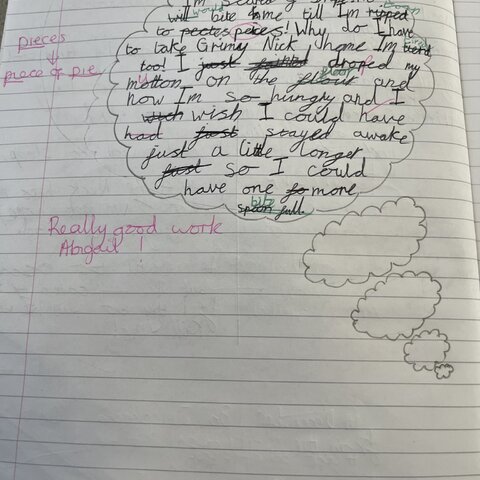 pieces
piece of pie
bite me till Im ripped
to peices! Why do I have
to take Grimy Nick home Im tierd
too! I just droped my
motton on the floor and
now Im so hungry and I
wish wish I could have
had just stayed awake
just a little longer
just so I could
have one more
bite
spoon full
Really good work
Abigail !